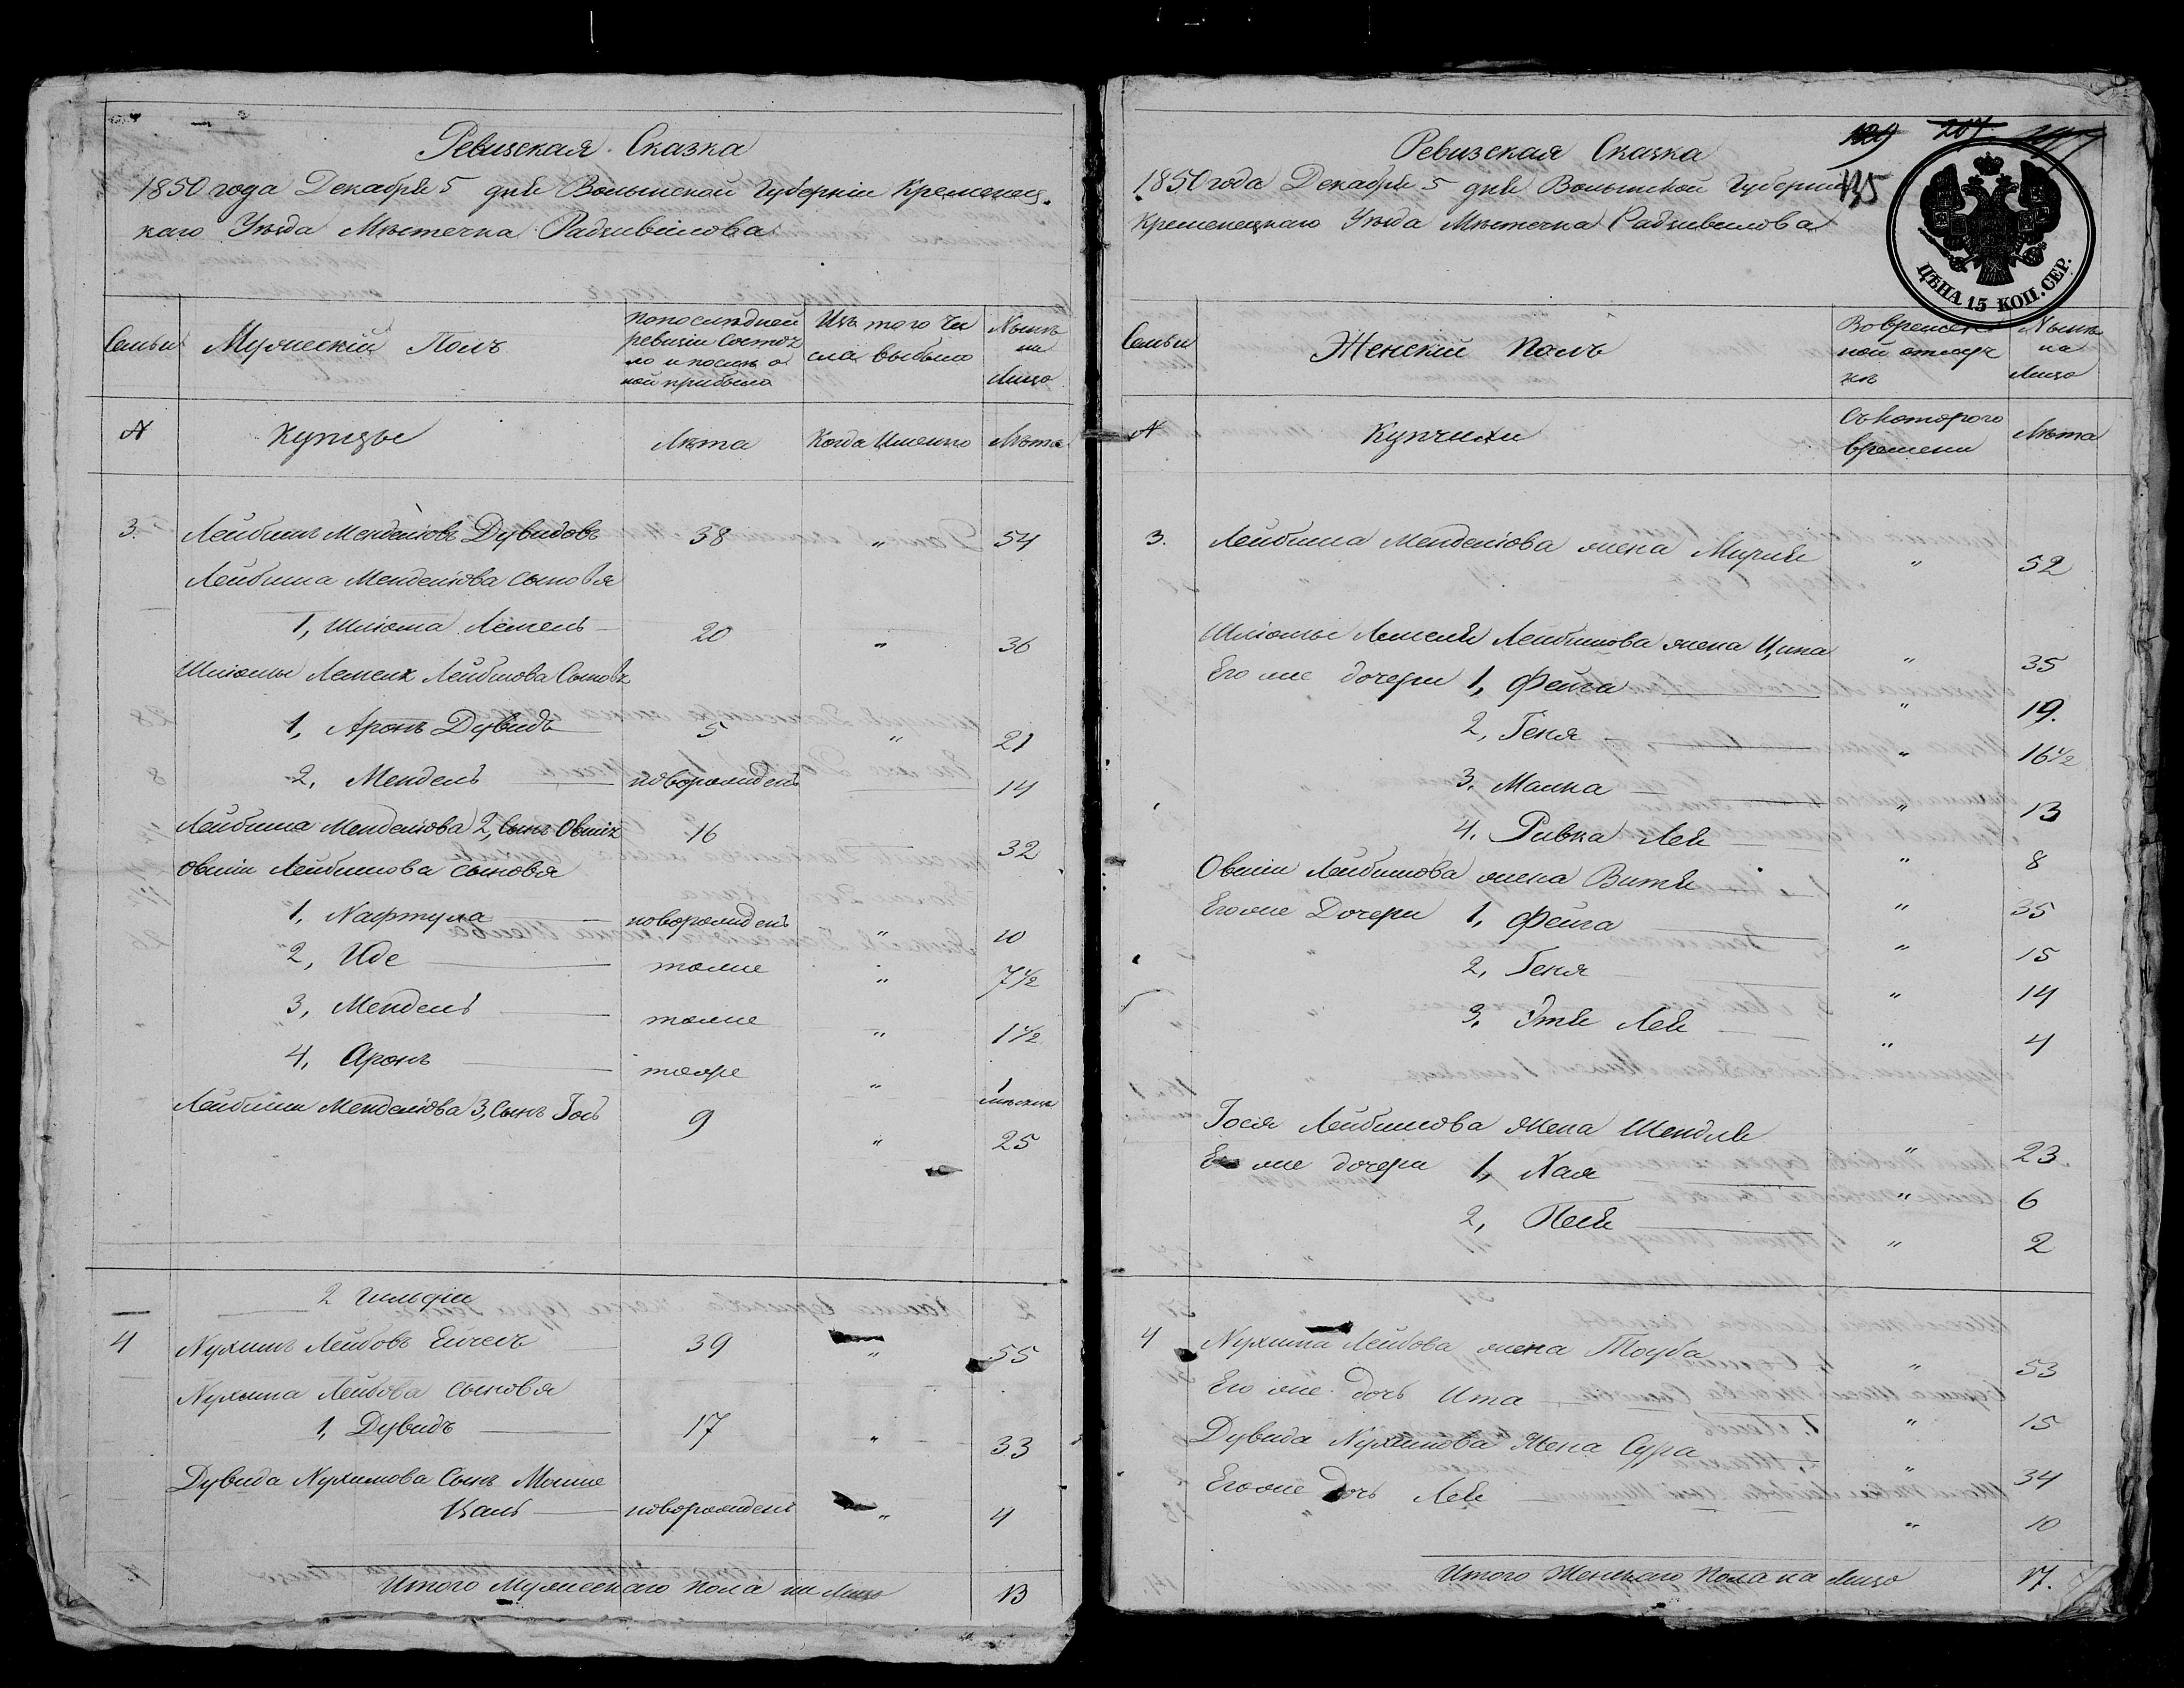 Ревизская Сказка
1850 года Декабря 5 дня Волынской Губернiи Кременец-
каго Уѣзда Мѣстечка Радзивилова
Семьи
Мужескiй Полъ
По последней
ревизiи состоя
ло и послѣ о
ной прибыло
Изъ того чи
сла выбыло
Нынѣ
на
Лицо
№
Купцы
Лѣта
Когда Именно
Лѣта
3. Лейбишъ Менделіовъ Дувидовъ 38 " 54
Лейбиша Менделіова сыновя
1, Шліома 20 " 36
1, Аронъ Дувидъ 5 " 21
2, Мендель новорожденъ 14
Лейбиша Менделіова 2, Сынъ Овшіи 16 32
Овшіи Лейбишова сыновя
1, Нафтула новорожденъ " 10
2, Иде тоже " 7 1/2
3, Мендель тоже " 1 1/2
4, Аронъ тоже " 1
мѣсяца
Лейбиша Менделіова 3, Сынъ Іось 9 " 25
2 Гильдіи
4 Нухимъ Лейбовъ 39 " 55
Нухима Лейбова сыновя
1, Дувидъ 17 " 33
Дувида Нухимова Сынъ Мошке
новорожденъ " 4
Итого Мужескаго пола на Лицо 13
Ревизская Сказка
1850 года Декабря 5 дня Волынской Губерніи
Кременецкаго Уѣзда Мѣстечка Радзивилова
129 207
135
ЦѢНА 15 КОП. СЕР.
Семьи
Женскій Полъ
Во времен
ной отлуч
кѣ
Нынѣ
на
Лицо
№
Купчихи
Съ котораго
времени
Лѣта
3. Лейбиша Менделіова жена Мирля " 52
Лейбишова жена Ципа " 35
Его же дочери 1, Фейга " 19.
2, Геня " 16 1/2
3. Малка " 13
4. Ривка Лея " 8
Овшіи Лейбишова жена Витля " 35
Его же Дочери 1, Фейга " 15
2, Геня " 14
3. Этя Лея " 4
Іося Лейбишова жена Шендля " 23
Его же дочери 1, Хая " 6
2, Песя " 2
4 Нухима Лейбова жена Тоуба " 53
Его же дочь Ита " 15
Дувида Нухимова Жена Сура " 34
Его же дочь Лея " 10
Итого Женскаго Пола на Лицо 17.